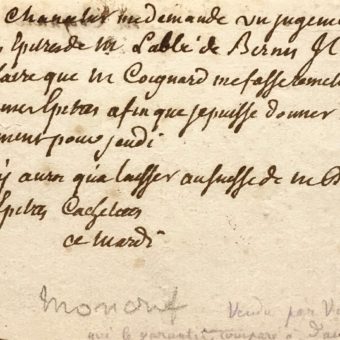 chancelier me demande un jugeme
Epitres de M. L'abbé de Bernis Il
faire que M Coignard me fasse remet
mes Epitres afin que je puisse donner
ment pour jeudi
y aura qu'a laisser au suisse de M
Epitres Cachetées
ce mardi
Moncrif Vendu par
qui le garantit, comparé à